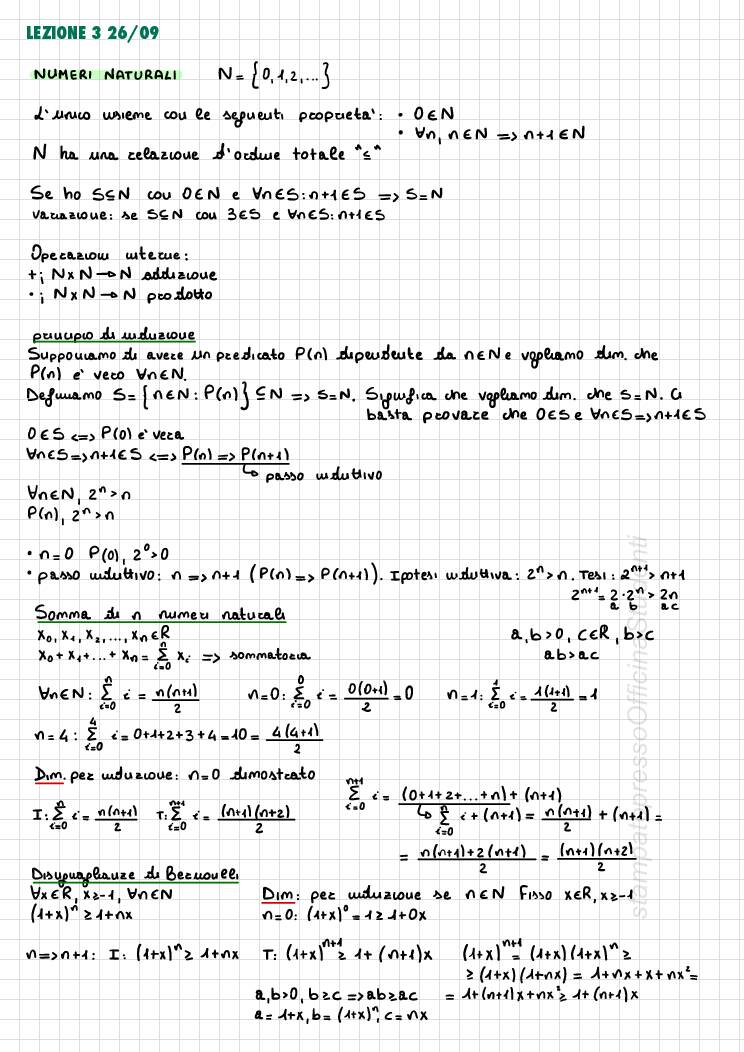 LEZIONE 3 26/09
NUMERI NATURALI N = {0,1,2,...}
L'unico insieme con le seguenti proprietà: • 0∈N
• ∀n, n∈N => n+1∈N
N ha una relazione d'ordine totale "≤"
Se ho S⊆N con 0∈N e ∀n∈S: n+1∈S => S=N
variazione: se S⊆N con 3∈S e ∀n∈S: n+1∈S
Operazioni interne:
+; N×N→N addizione
•; N×N→N prodotto
principio di induzione
Supponiamo di avere un predicato P(n) dipendente da n∈N e vogliamo dim. che
P(n) è vero ∀n∈N.
Definiamo S={n∈N: P(n)} ⊆N => S=N. Significa che vogliamo dim. che S=N. Ci
basta provare che 0∈S e ∀n∈S=>n+1∈S
0∈S <=> P(0) è vera
∀n∈S=>n+1∈S <=> P(n) => P(n+1)
↳ passo induttivo
∀n∈N, 2ⁿ>n
P(n), 2ⁿ>n
• n=0 P(0), 2⁰>0
• passo induttivo: n => n+1 (P(n) => P(n+1)). Ipotesi induttiva: 2ⁿ>n. Tesi: 2ⁿ⁺¹>n+1
2ⁿ⁺¹ = 2·2ⁿ > 2n
a b ac
Somma di n numeri naturali
x₀, x₁, x₂, ..., xₙ∈R a,b>0, c∈R, b>c
x₀+x₁+...+xₙ = ∑ⁿᵢ₌₀ xᵢ => sommatoria ab>ac
∀n∈N: ∑ⁿᵢ₌₀ i = n(n+1)/2 n=0: ∑⁰ᵢ₌₀ i = 0(0+1)/2 = 0 n=1: ∑¹ᵢ₌₀ i = 1(1+1)/2 = 1
n=4: ∑⁴ᵢ₌₀ i = 0+1+2+3+4=10= 4(4+1)/2
Dim. per induzione: n=0 dimostrato
∑ⁿ⁺¹ᵢ₌₀ i = (0+1+2+...+n)+(n+1)
I: ∑ⁿᵢ₌₀ i = n(n+1)/2 T: ∑ⁿ⁺¹ᵢ₌₀ i = (n+1)(n+2)/2 ↳ ∑ⁿᵢ₌₀ i+(n+1) = n(n+1)/2 + (n+1) =
= n(n+1)+2(n+1)/2 = (n+1)(n+2)/2
Disuguaglianze di Bernoulli
∀x∈R, x≥-1, ∀n∈N Dim: per induzione se n∈N Fisso x∈R, x≥-1
(1+x)ⁿ ≥ 1+nx n=0: (1+x)⁰ = 1 ≥ 1+0x
n=>n+1: I: (1+x)ⁿ ≥ 1+nx T: (1+x)ⁿ⁺¹ ≥ 1+(n+1)x (1+x)ⁿ⁺¹ = (1+x)(1+x)ⁿ ≥
≥ (1+x)(1+nx) = 1+nx+x+nx² =
a,b>0, b≥c => ab≥ac = 1+(n+1)x+nx² ≥ 1+(n+1)x
a = 1+x, b = (1+x)ⁿ, c = nx
stampato presso Officina Studenti